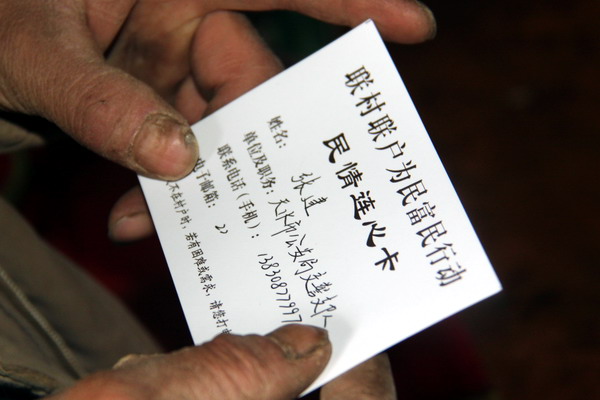 联村联户为民富民行动
民情连心卡
姓名： 张建
单位及职务：天水市公安局交警支队
联系电话（手机）：1383087799
电子邮箱：
不在村户时，若有困难或需求，请您打